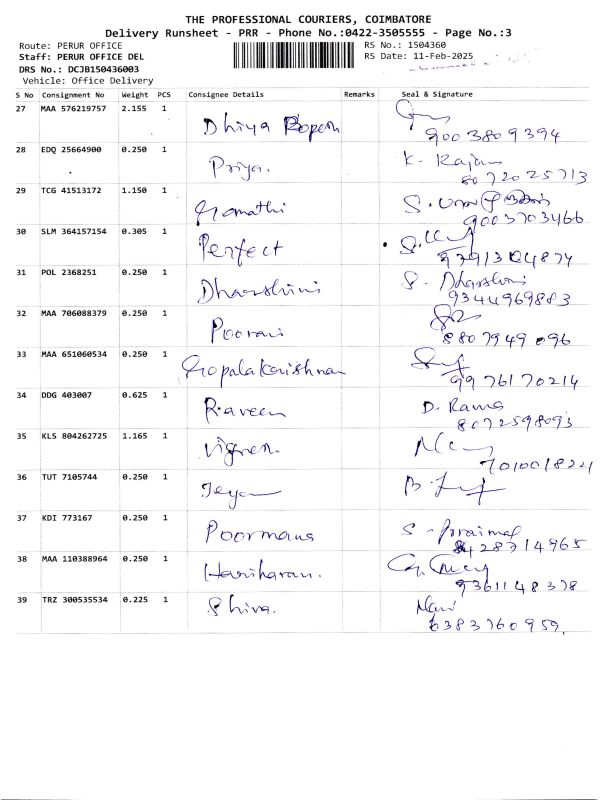 THE PROFESSIONAL COURIERS, COIMBATORE
Delivery Runsheet - PRR - Phone No.:0422-3505555 - Page No.:3
Route: PERUR OFFICE RS No.: 1504360
Staff: PERUR OFFICE DEL RS Date: 11-Feb-2025
DRS No.: DCJB150436003
Vehicle: Office Delivery
S No Consignment No Weight PCS Consignee Details Remarks Seal & Signature
27 MAA 576219757 2.155 1 Dhiya
9003809394
28 EDQ 25664900 0.250 1 Priya. K. Rajan
8072025713
29 TCG 41513172 1.150 1 Gomathi S.
9003703466
30 SLM 364157154 0.305 1 Perfect
31 POL 2368251 0.250 1 Dharshini S. Dharshini
9344969883
32 MAA 706088379 0.250 1 Poorani
8807949096
33 MAA 651060534 0.250 1 Gopalakrishnan
9976170214
34 DDG 403007 0.625 1 Raveen D. Rama
8072598093
35 KLS 804262725 1.165 1 Vignesh
7010018221
36 TUT 7105744 0.250 1 Jeya
37 KDI 773167 0.250 1 Poormana
38 MAA 110388964 0.250 1 Hariharan.
9361148378
39 TRZ 300535534 0.225 1 Shiva.
6383760959